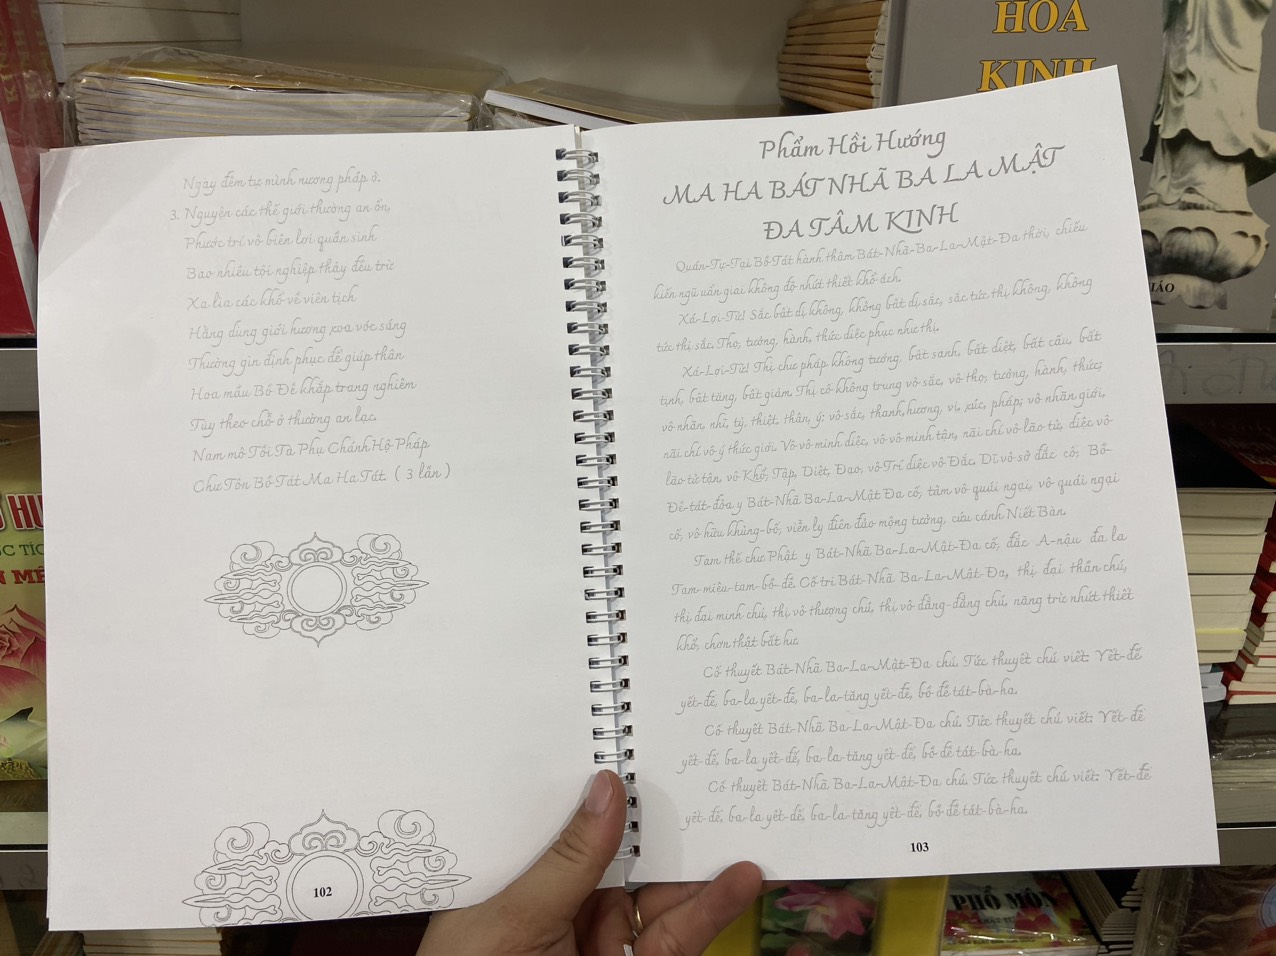 HOA
KINH
Ngày đêm tự mình nương pháp ở.
3. Nguyện các thế giới thường an ổn
Phước trí vô biên lợi quần sinh
Bao nhiêu tội nghiệp thảy đều trừ
Xa lìa các khổ về viên tịch
Hằng dùng giới hương xoa vóc sáng
Thường gìn định phục để giúp thân
Hoa mầu Bồ Đề khắp trang nghiêm
Tùy theo chỗ ở thường an lạc.
Nam mô Tồi Tà Phụ Chánh Hộ Pháp
Chư Tôn Bồ Tát Ma Ha Tát. ( 3 lần )
102
Phẩm Hồi Hướng
MA HA BÁT NHÃ BA LA MẬT
ĐA TÂM KINH
Quán-Tự-Tại Bồ Tát hành thâm Bát-Nhã-Ba-La-Mật-Đa thời, chiếu
kiến ngũ uẩn giai không độ nhứt thiết khổ ách.
Xá-Lợi-Tử! Sắc bất dị không, không bất dị sắc, sắc tức thị không, không
tức thị sắc. Thọ, tưởng, hành, thức diệc phục như thị.
Xá-Lợi-Tử! Thị chư pháp không tướng, bất sanh, bất diệt, bất cấu, bất
tịnh, bất tăng, bất giảm. Thị cố không trung vô sắc, vô thọ, tưởng, hành, thức;
vô nhãn, nhĩ, tỷ, thiệt, thân, ý; vô sắc, thanh, hương, vị, xúc, pháp; vô nhãn giới,
nãi chí vô ý thức giới. Vô vô minh diệc, vô vô minh tận, nãi chí vô lão tử, diệc vô
lão tử tận, vô Khổ, Tập, Diệt, Đạo. vô Trí diệc vô Đắc. Dĩ vô sở đắc cố, Bồ-
Đề-tát-đỏa y Bát-Nhã Ba-La-Mật Đa cố, tâm vô quái ngại, vô quái ngại
cố, vô hữu khủng-bố, viễn ly điên đảo mộng tưởng, cứu cánh Niết Bàn.
Tam thế chư Phật y Bát-Nhã Ba-La-Mật-Đa cố, đắc A-nậu đa la
Tam-miệu-tam-bồ-đề. Cố tri Bát-Nhã Ba-La-Mật-Đa, thị đại thần chú,
thị đại minh chú, thị vô thượng chú, thị vô đẳng-đẳng chú, năng trừ nhứt thiết
khổ, chơn thật bất hư.
Cố thuyết Bát-Nhã Ba-La-Mật-Đa chú. Tức thuyết chú viết: Yết-đế
yết-đế, ba-la yết-đế, ba-la-tăng yết-đế, bồ đề tát-bà-ha.
Cố thuyết Bát-Nhã Ba-La-Mật-Đa chú. Tức thuyết chú viết: Yết-đế
yết-đế, ba-la yết-đế, ba-la-tăng yết-đế, bồ đề tát-bà-ha.
Cố thuyết Bát-Nhã Ba-La-Mật-Đa chú. Tức thuyết chú viết: Yết-đế
yết-đế, ba-la yết-đế, ba-la-tăng yết-đế, bồ đề tát-bà-ha.
103
PHỔ MÔN